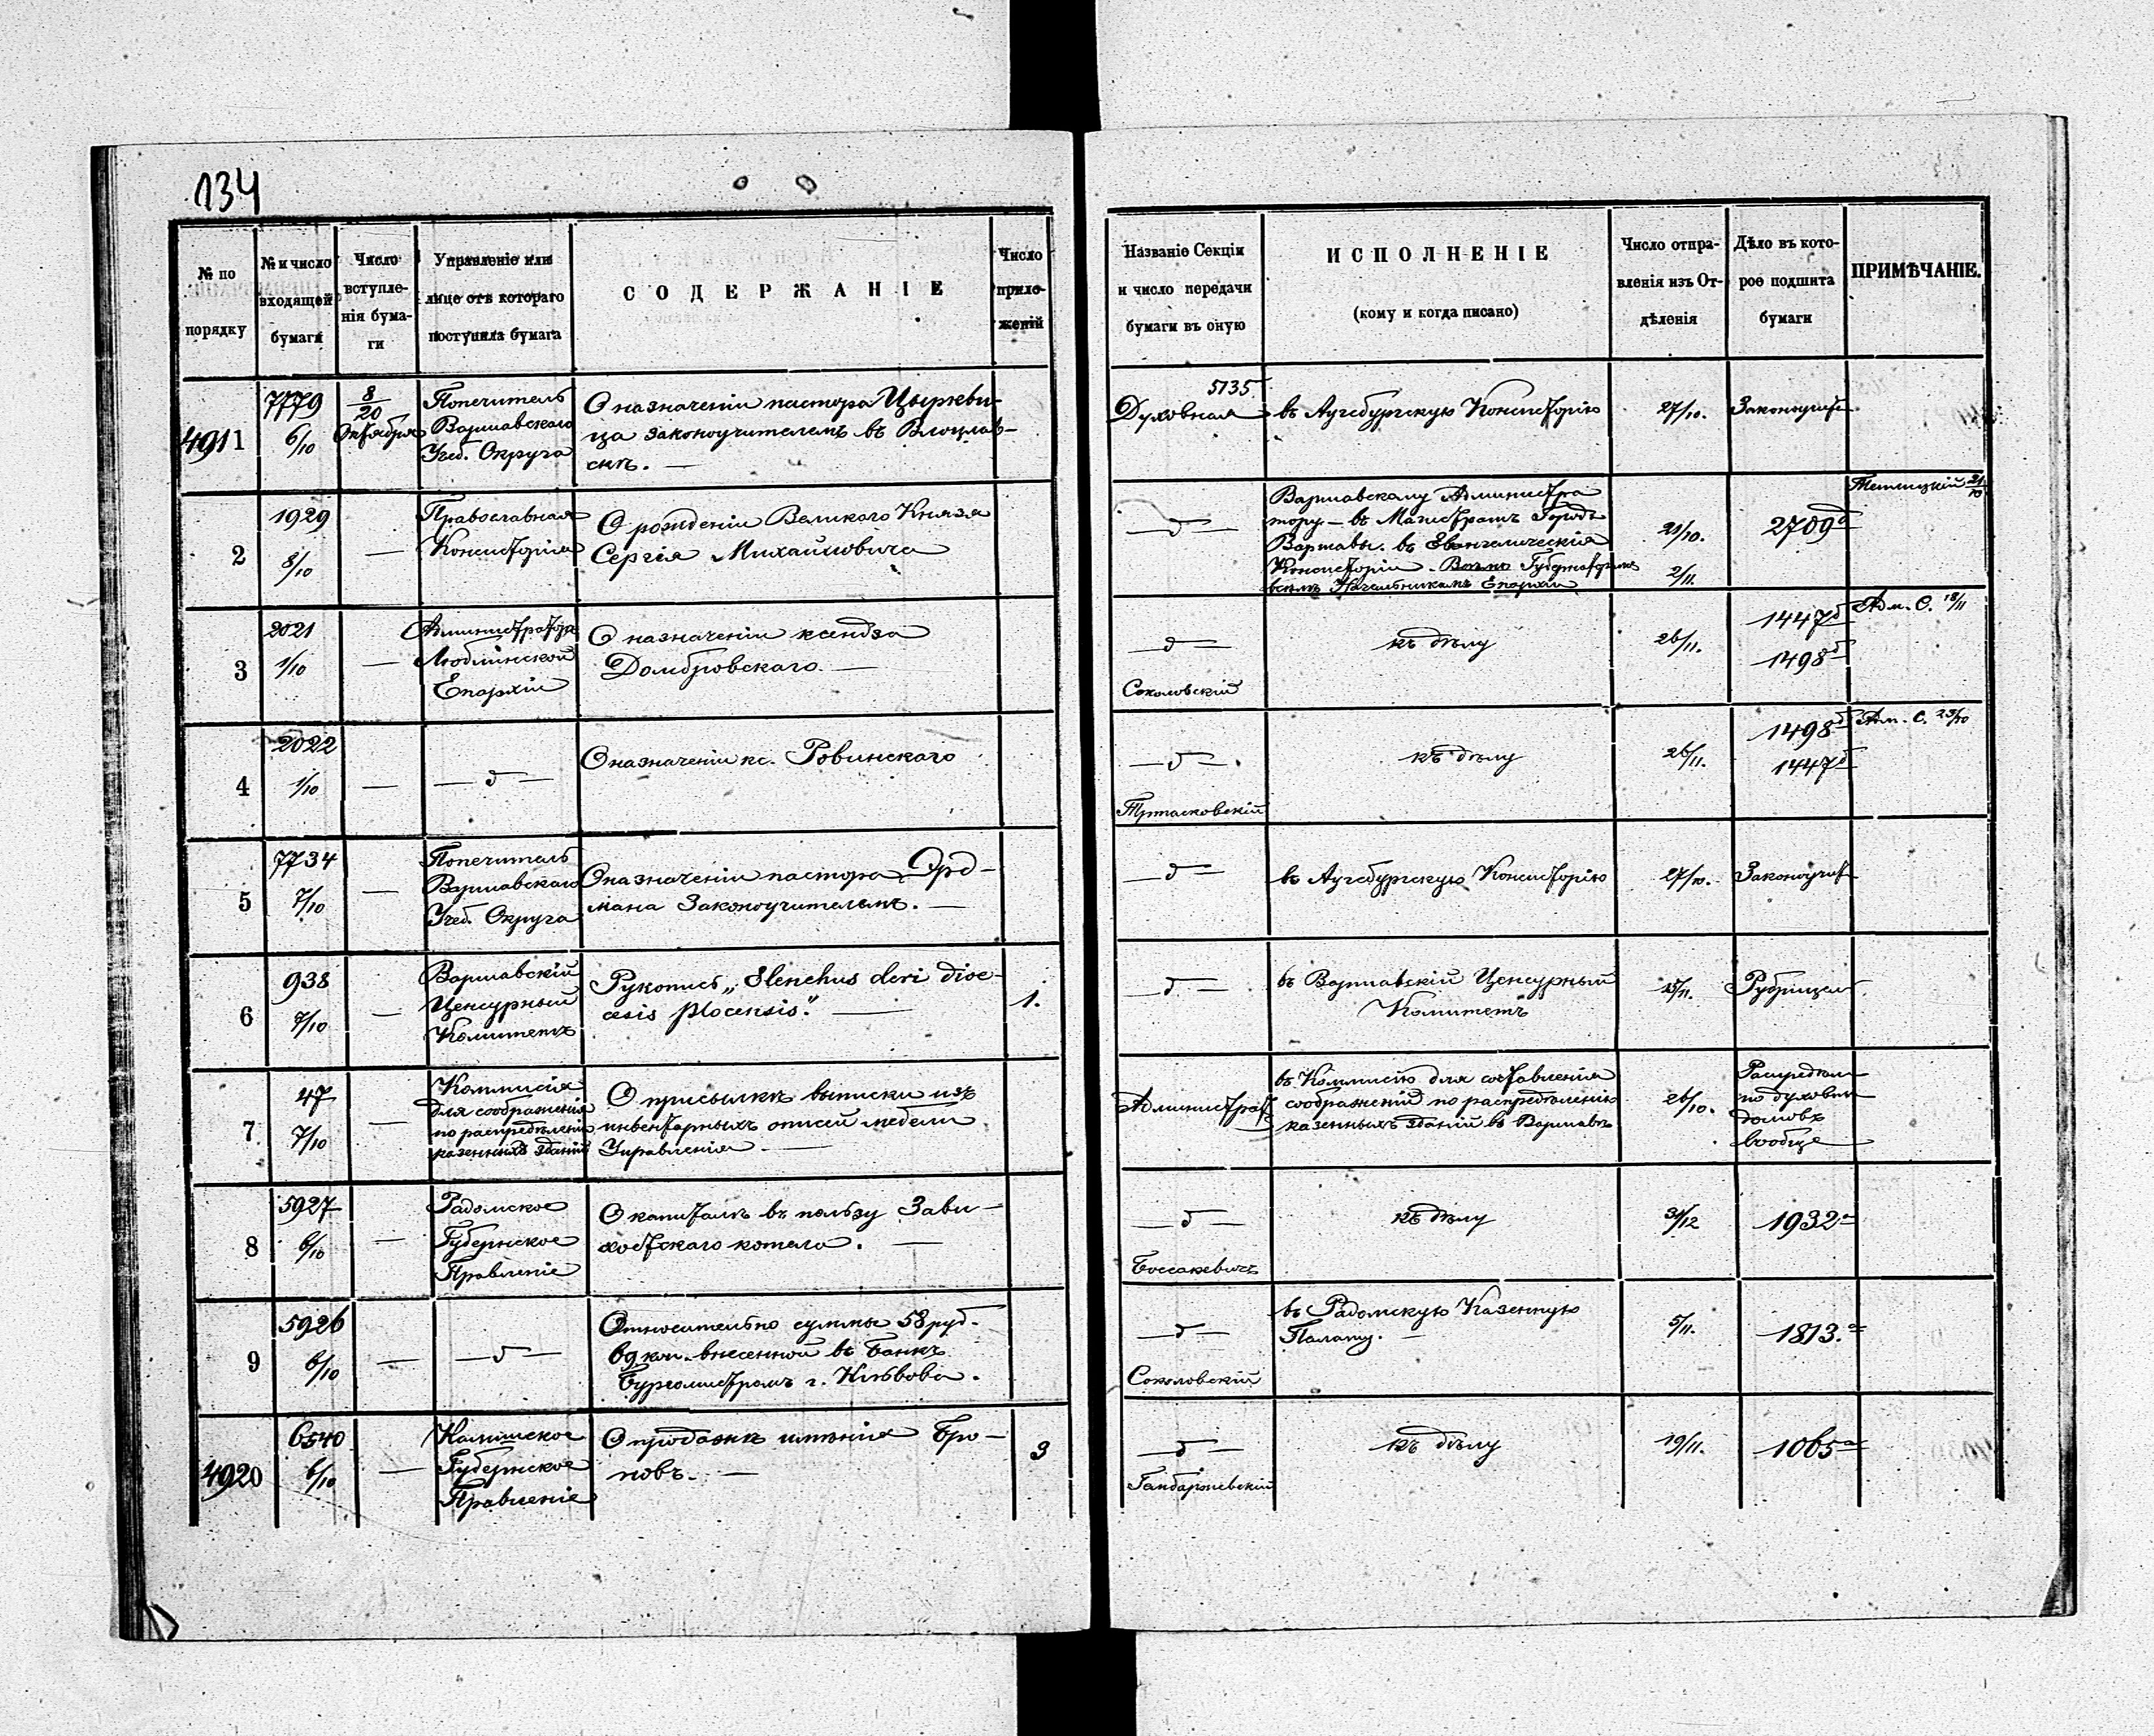 134
№ по порядку
№ и число входящей бумаги
Число вступле-нія бума-ги
Управленіе или лице отъ котораго поступила бумага
СОДЕРЖАНІЕ
Число прило-женій
Названіе Секціи и число передачи бумаги въ оную
ИСПОЛНЕНІЕ
(кому и когда писано)
Число отпра-вленія изъ От-дѣленія
Дѣло въ кото-рое подшита бумаги
ПРИМѢЧАНІЕ.
4911
7779
6/10
8/20
Октября
Попечитель
Варшавскаго
Учеб. Округа
О назначеніи пастора Цыркви-
ца законоучителемъ въ Влоцлав-
скѣ. —
5735
Духовная
въ Аугсбургскую Консисторію
27/10.
Законоучит
2
1929
8/10
—
Православная
Консисторія
О рожденіи Великаго Князя
Сергія Михайловича
— д —
Варшавскому Администра
тору — въ Магистратъ Города
Варшавы. въ Евангелическія
Консисторіи.
всѣмъ Начальникамъ Епархіи
21/10.
2/11.
2709
21/10
3
2021
1/10
—
Администраторъ
Люблинской
Епархіи
О назначеніи ксендза
Домбровскаго. —
— д —
Соколовскій
къ дѣлу
26/11.
1447
1498
Адм. С. 18/11
4
2022
1/10
—
— д —
О назначеніи кс. Ровинскаго
— д —
къ дѣлу
26/11.
1498
1447
Адм. С. 23/10
5
7734
7/10
—
Попечитель
Варшавскаго
Учеб. Округа
О назначеніи пастора Эрд-
мана Законоучителемъ. —
— д —
въ Аугсбургскую Консисторію
27/10.
Законоучит
6
938
7/10
—
Варшавскій
Ценсурный
Комитетъ
Рукопись „Elenchus cleri dioe-
cesis plocensis.“ —
1.
— д —
въ Варшавскій Ценсурный
Комитетъ
15/11.
Рубрицел
7
47
7/10
—
Коммисія
для соображенія
по распредѣленію
казенныхъ зданій
О присылкѣ выписки изъ
инвентарныхъ описей мебели
Управленія. —
Администрат
въ Коммисію для составленія
соображеній по распредѣленію
казенныхъ зданій въ Варшавѣ
26/10.
по духовн
домовъ
вообще
8
5927
6/10
—
Радомское
Губернское
Правленіе
О капиталѣ въ пользу Зави-
хостскаго костела. —
— д —
къ дѣлу
31/12
1932
9
5926
6/10
—
— д —
Относительно суммы 58 руб.
69 коп. внесенной въ Банкъ
Бургомистромъ г.
— д —
Соколовскій
въ Радомскую Казенную
Палату. —
5/11.
1813.
4920
6540
6/10
—
Калишское
Губернское
Правленіе
О продажѣ имѣнія Бро-
новъ. —
3
— д —
къ дѣлу
19/11.
1065